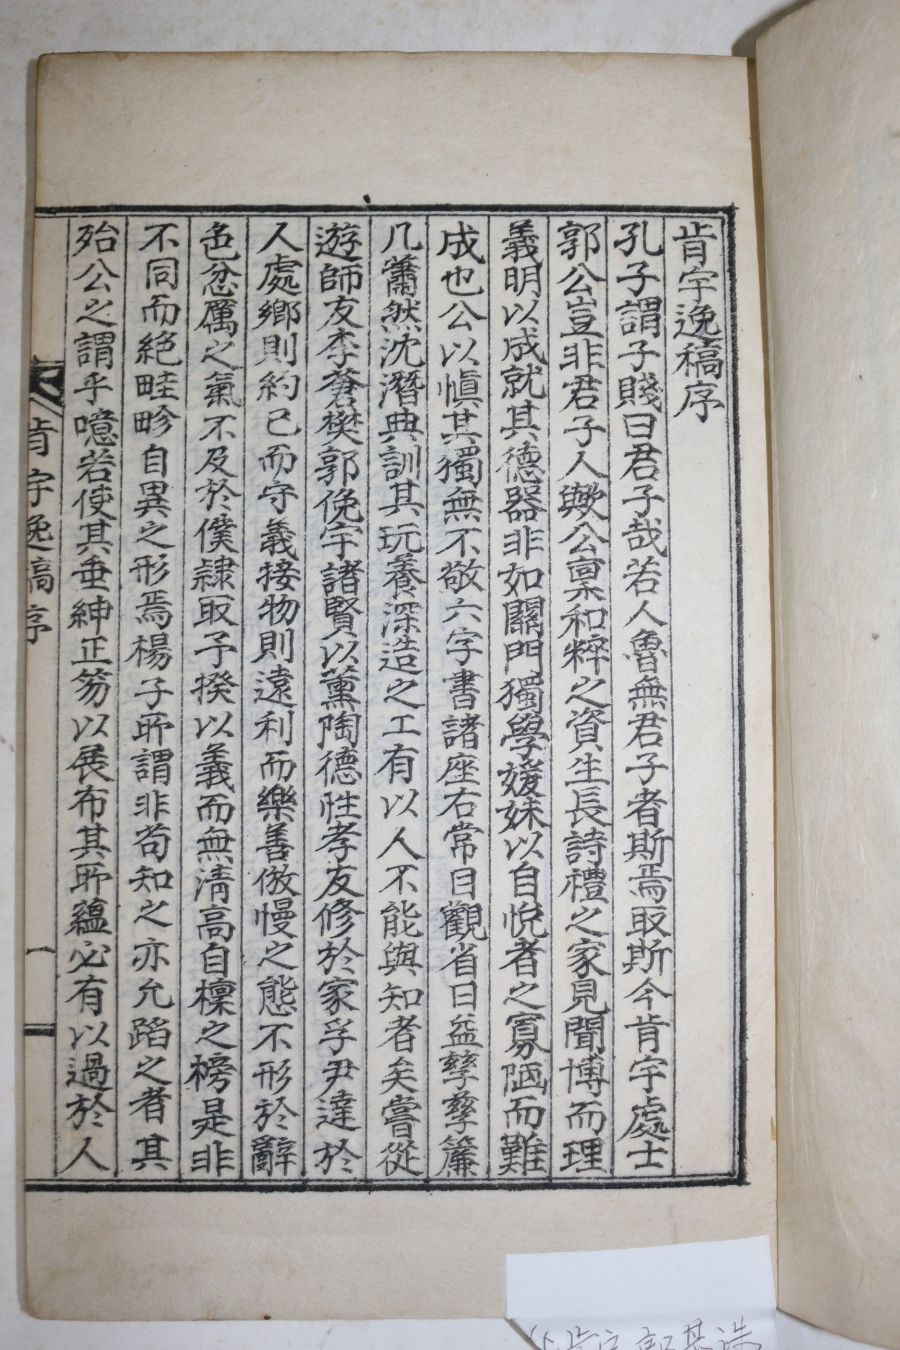 肯宇逸稿序
孔子謂子賤曰君子哉若人魯無君子者斯焉取斯今肯宇處士
郭公豈非君子人歟公禀和粹之資生長詩禮之家見聞博而理
義明以成就其德器非如關門獨學媛姝以自悅者之寡陋而難
成也公以愼其獨無不敬六字書諸座右常目觀省日益孶孶簾
几蕭然沈潛典訓其玩養深造之工有以人不能與知者矣嘗從
遊師友李蒼樊郭俛宇諸賢以薰陶德性孝友修於家孚尹達於
人處鄉則約己而守義接物則遠利而樂善倣慢之態不形於辭
色忿厲之氣不及於僕隷取予揆以義而無淸高自標之榜是非
不同而絶畦畛自異之形焉楊子所謂非苟知之亦允蹈之者其
殆公之謂乎噫若使其垂紳正笏以展布其所蘊必有以過於人
肯宇逸稿序
一